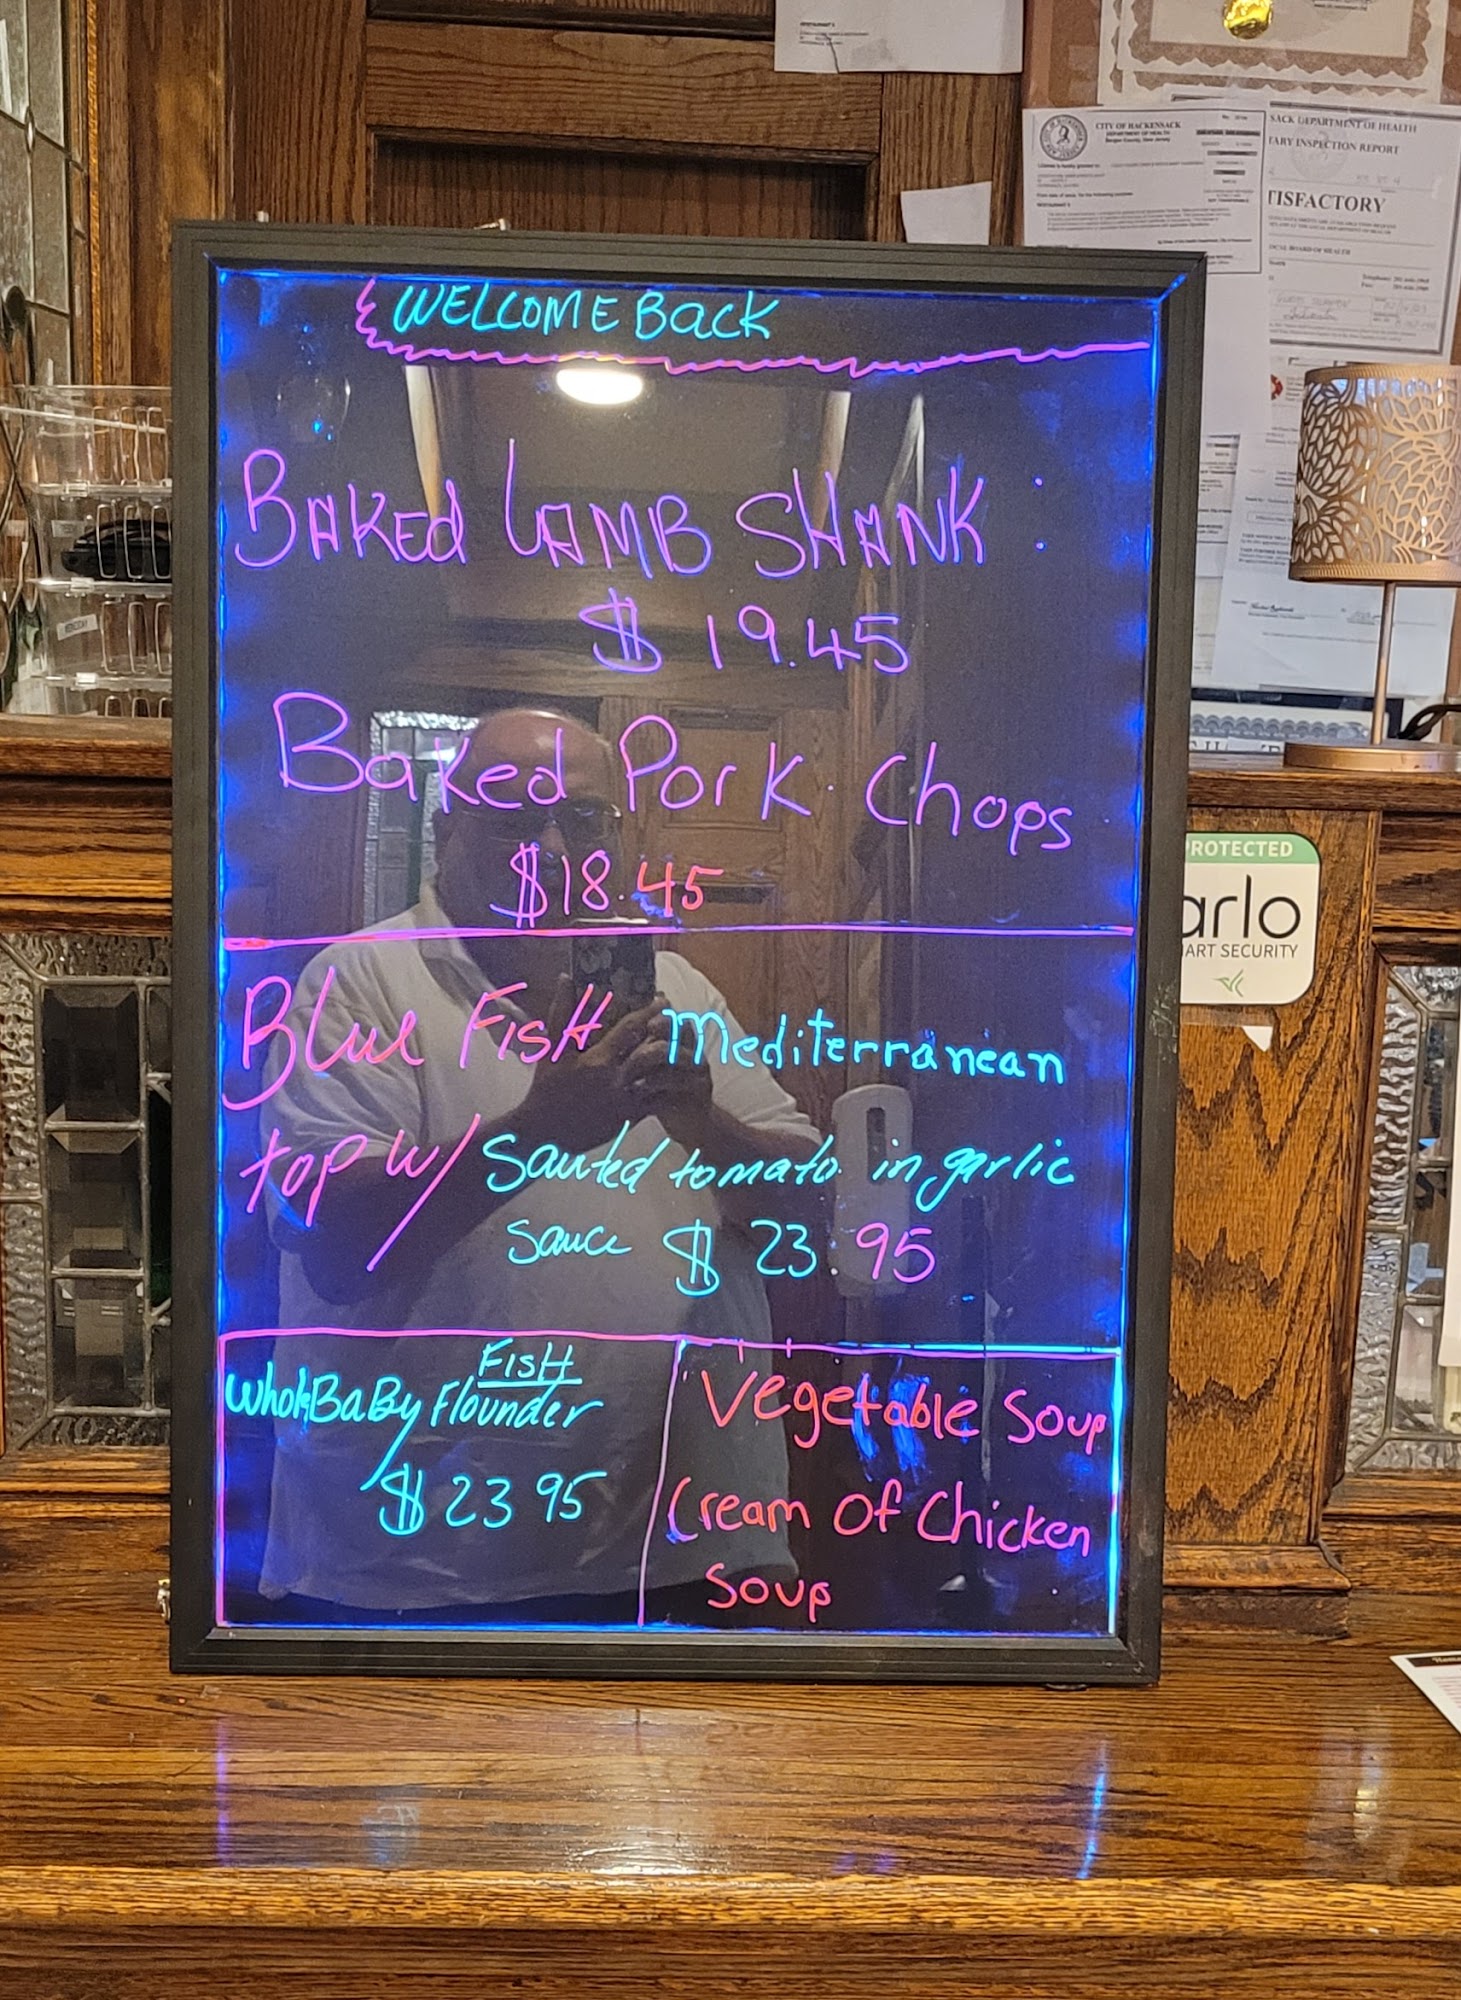 WELCOME BacK
BAKEd LAMB SHANK :
$ 19.45
Baked Pork Chops
$18.45
BLue FISH Mediterranean
top w/ Sauted tomato in garlic
sauce $ 23.95
FISH
Whole BaBy Flounder
$ 23 95
Vegetable Soup
Cream Of Chicken
Soup
CITY OF HACKENSACK
DEPARTMENT OF HEALTH
Bergen County, New Jersey
SACK DEPARTMENT OF HEALTH
TARY INSPECTION REPORT
TISFACTORY
OCAL BOARD OF HEALTH
PROTECTED
arlo
MART SECURITY